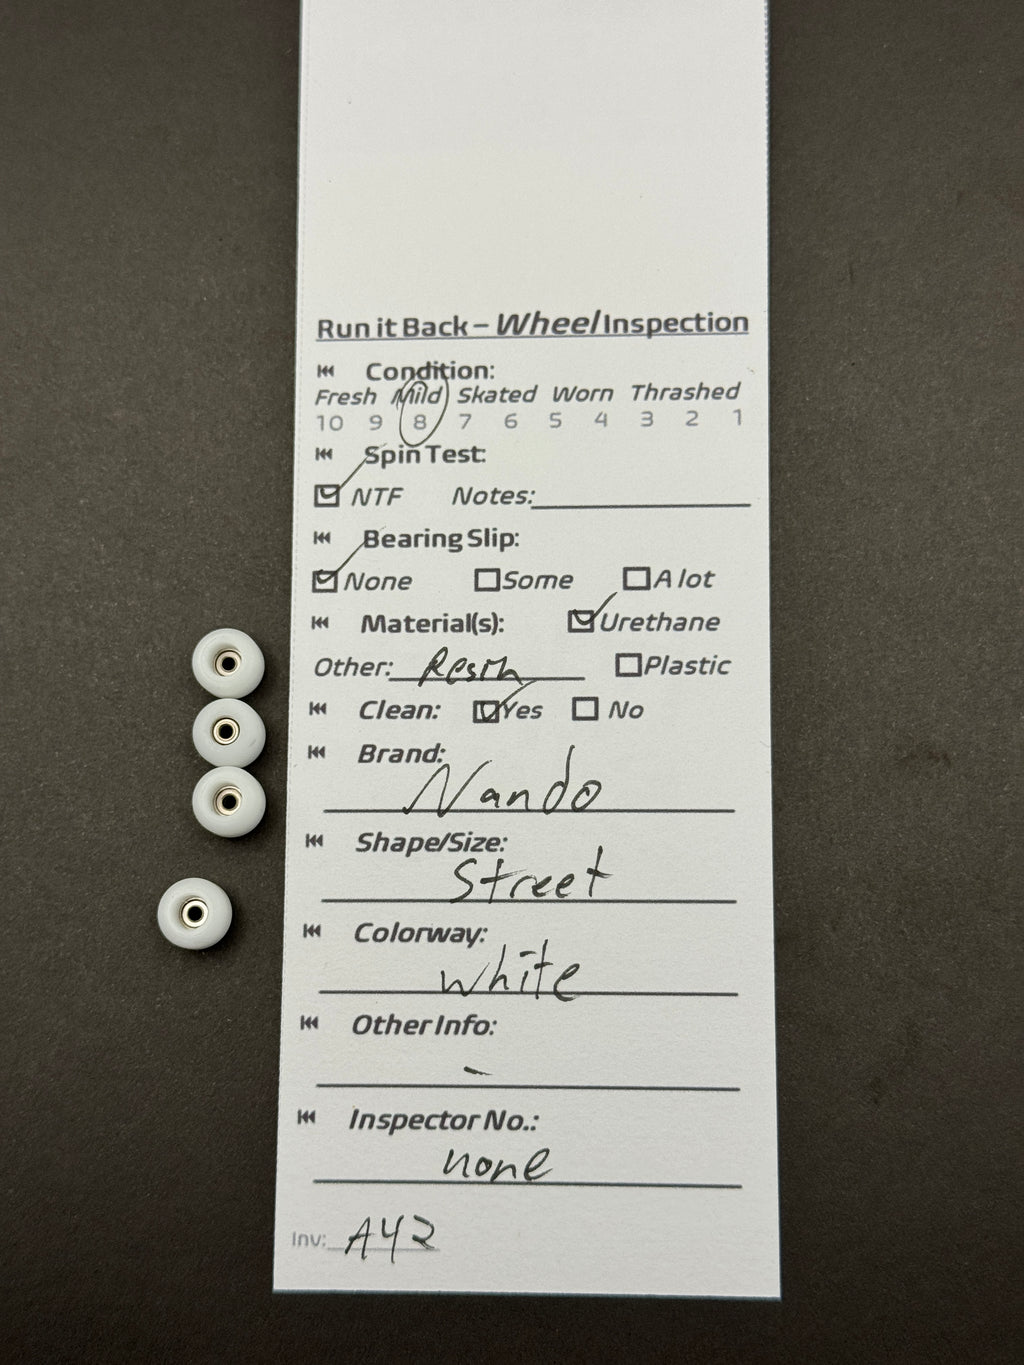 Run it Back – Wheel Inspection
Condition:
Fresh Mild Skated Worn Thrashed
10 9 8 7 6 5 4 3 2 1
Spin Test:
NTF Notes:
Bearing Slip:
None Some A lot
Material(s): Urethane
Other: Resin Plastic
Clean: Yes No
Brand:
Nando
Shape/Size:
Street
Colorway:
white
Other Info:
-
Inspector No.:
none
Inv: A42